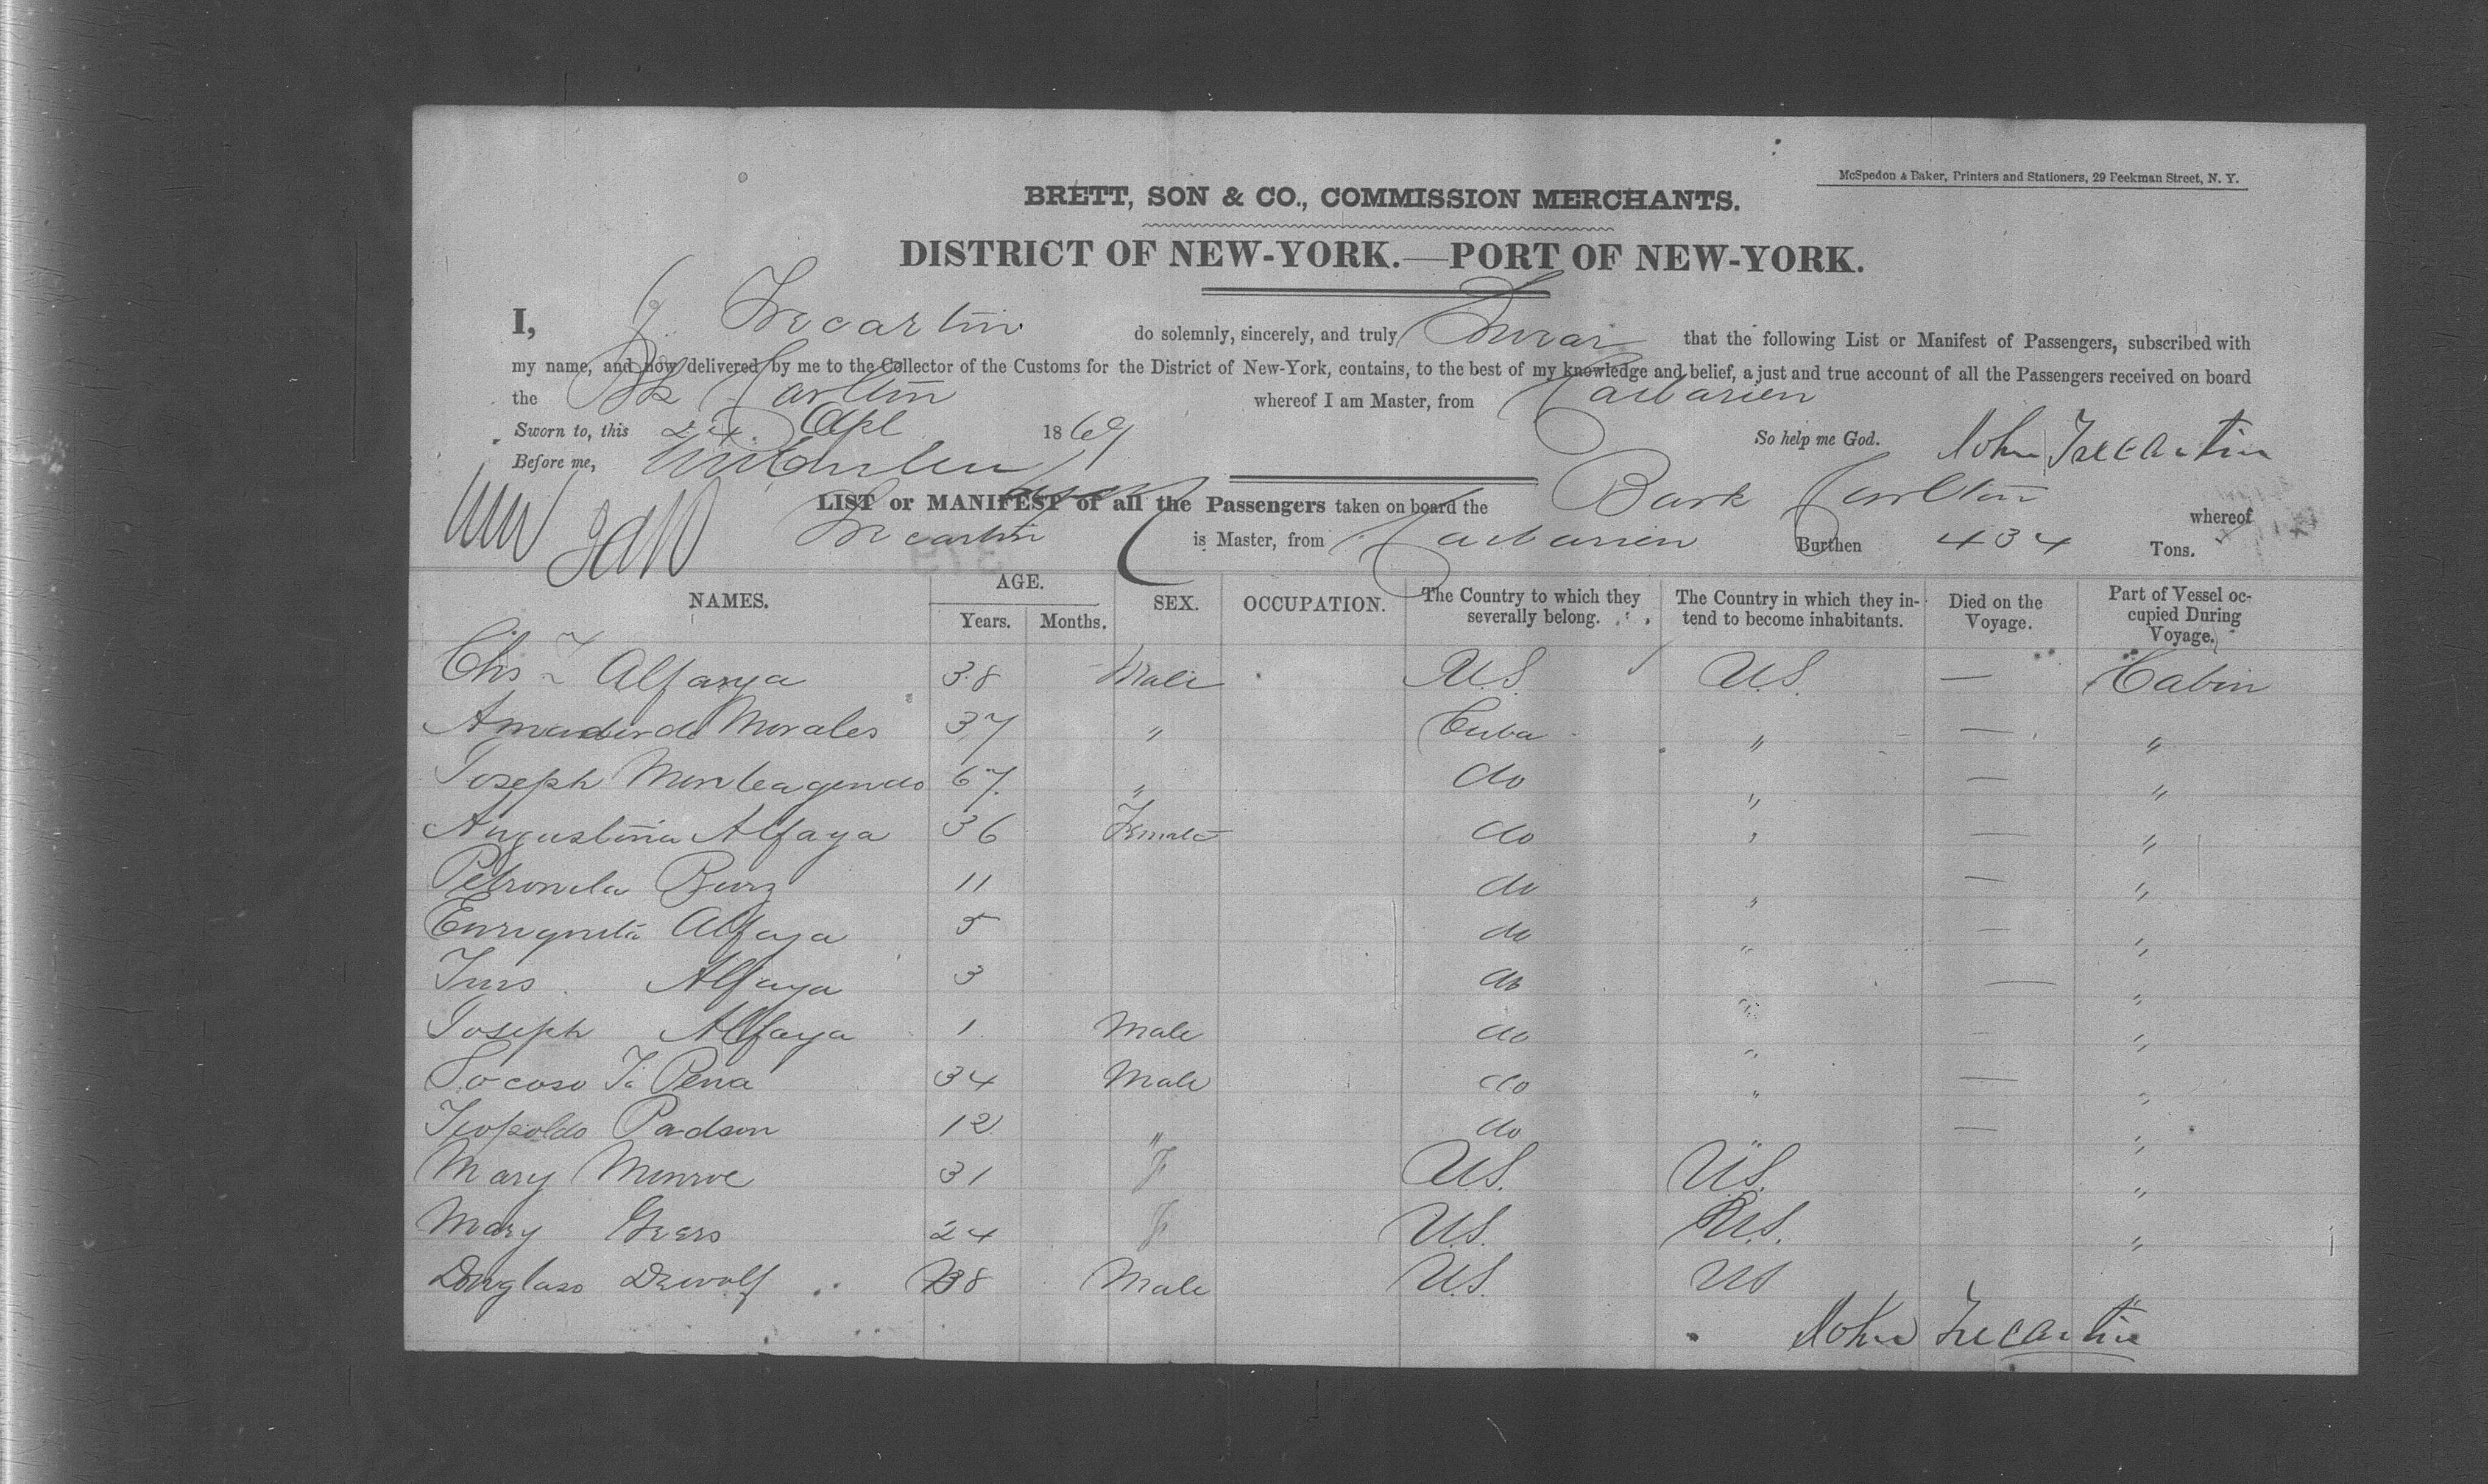 McSpedon & Baker, Printers and Stationers, 29 Beekman Street, N. Y.
BRETT, SON & CO., COMMISSION MERCHANTS.
DISTRICT OF NEW-YORK.—PORT OF NEW-YORK.
I, J. Trecartin do solemnly, sincerely, and truly Swear that the following List or Manifest of Passengers, subscribed with
my name, and now delivered by me to the Collector of the Customs for the District of New-York, contains, to the best of my knowledge and belief, a just and true account of all the Passengers received on board
the Bk Carlton whereof I am Master, from Caibarien
Sworn to, this 24 Apl 1869 So help me God. John Trecartin
Before me,
LIST or MANIFEST of all the Passengers taken on board the Bark Carlton whereof
Trecartin is Master, from Caibarien Burthen 434 Tons.
NAMES. AGE. Years. Months. SEX. OCCUPATION. The Country to which they severally belong. The Country in which they intend to become inhabitants. Died on the Voyage. Part of Vessel occupied During Voyage.
Chs T Alfaya 38 Male U.S. U.S. — Cabin
Morales 37 " Cuba " — "
Joseph Monteagendo 67 " do " — "
Augustina Alfaya 36 Female do " — "
Petronila 11 do " — "
Enriqueta Alfaya 5 do " — "
Alfaya 3 do " — "
Joseph Alfaya 1 Male do " "
Pena 34 Male do " — "
Leopoldo Padson 12 " do " — "
Mary Monroe 31 F U.S. U.S. "
Mary 24 F U.S. U.S. "
Douglass Dewolf 38 Male U.S. US
John Trecartin